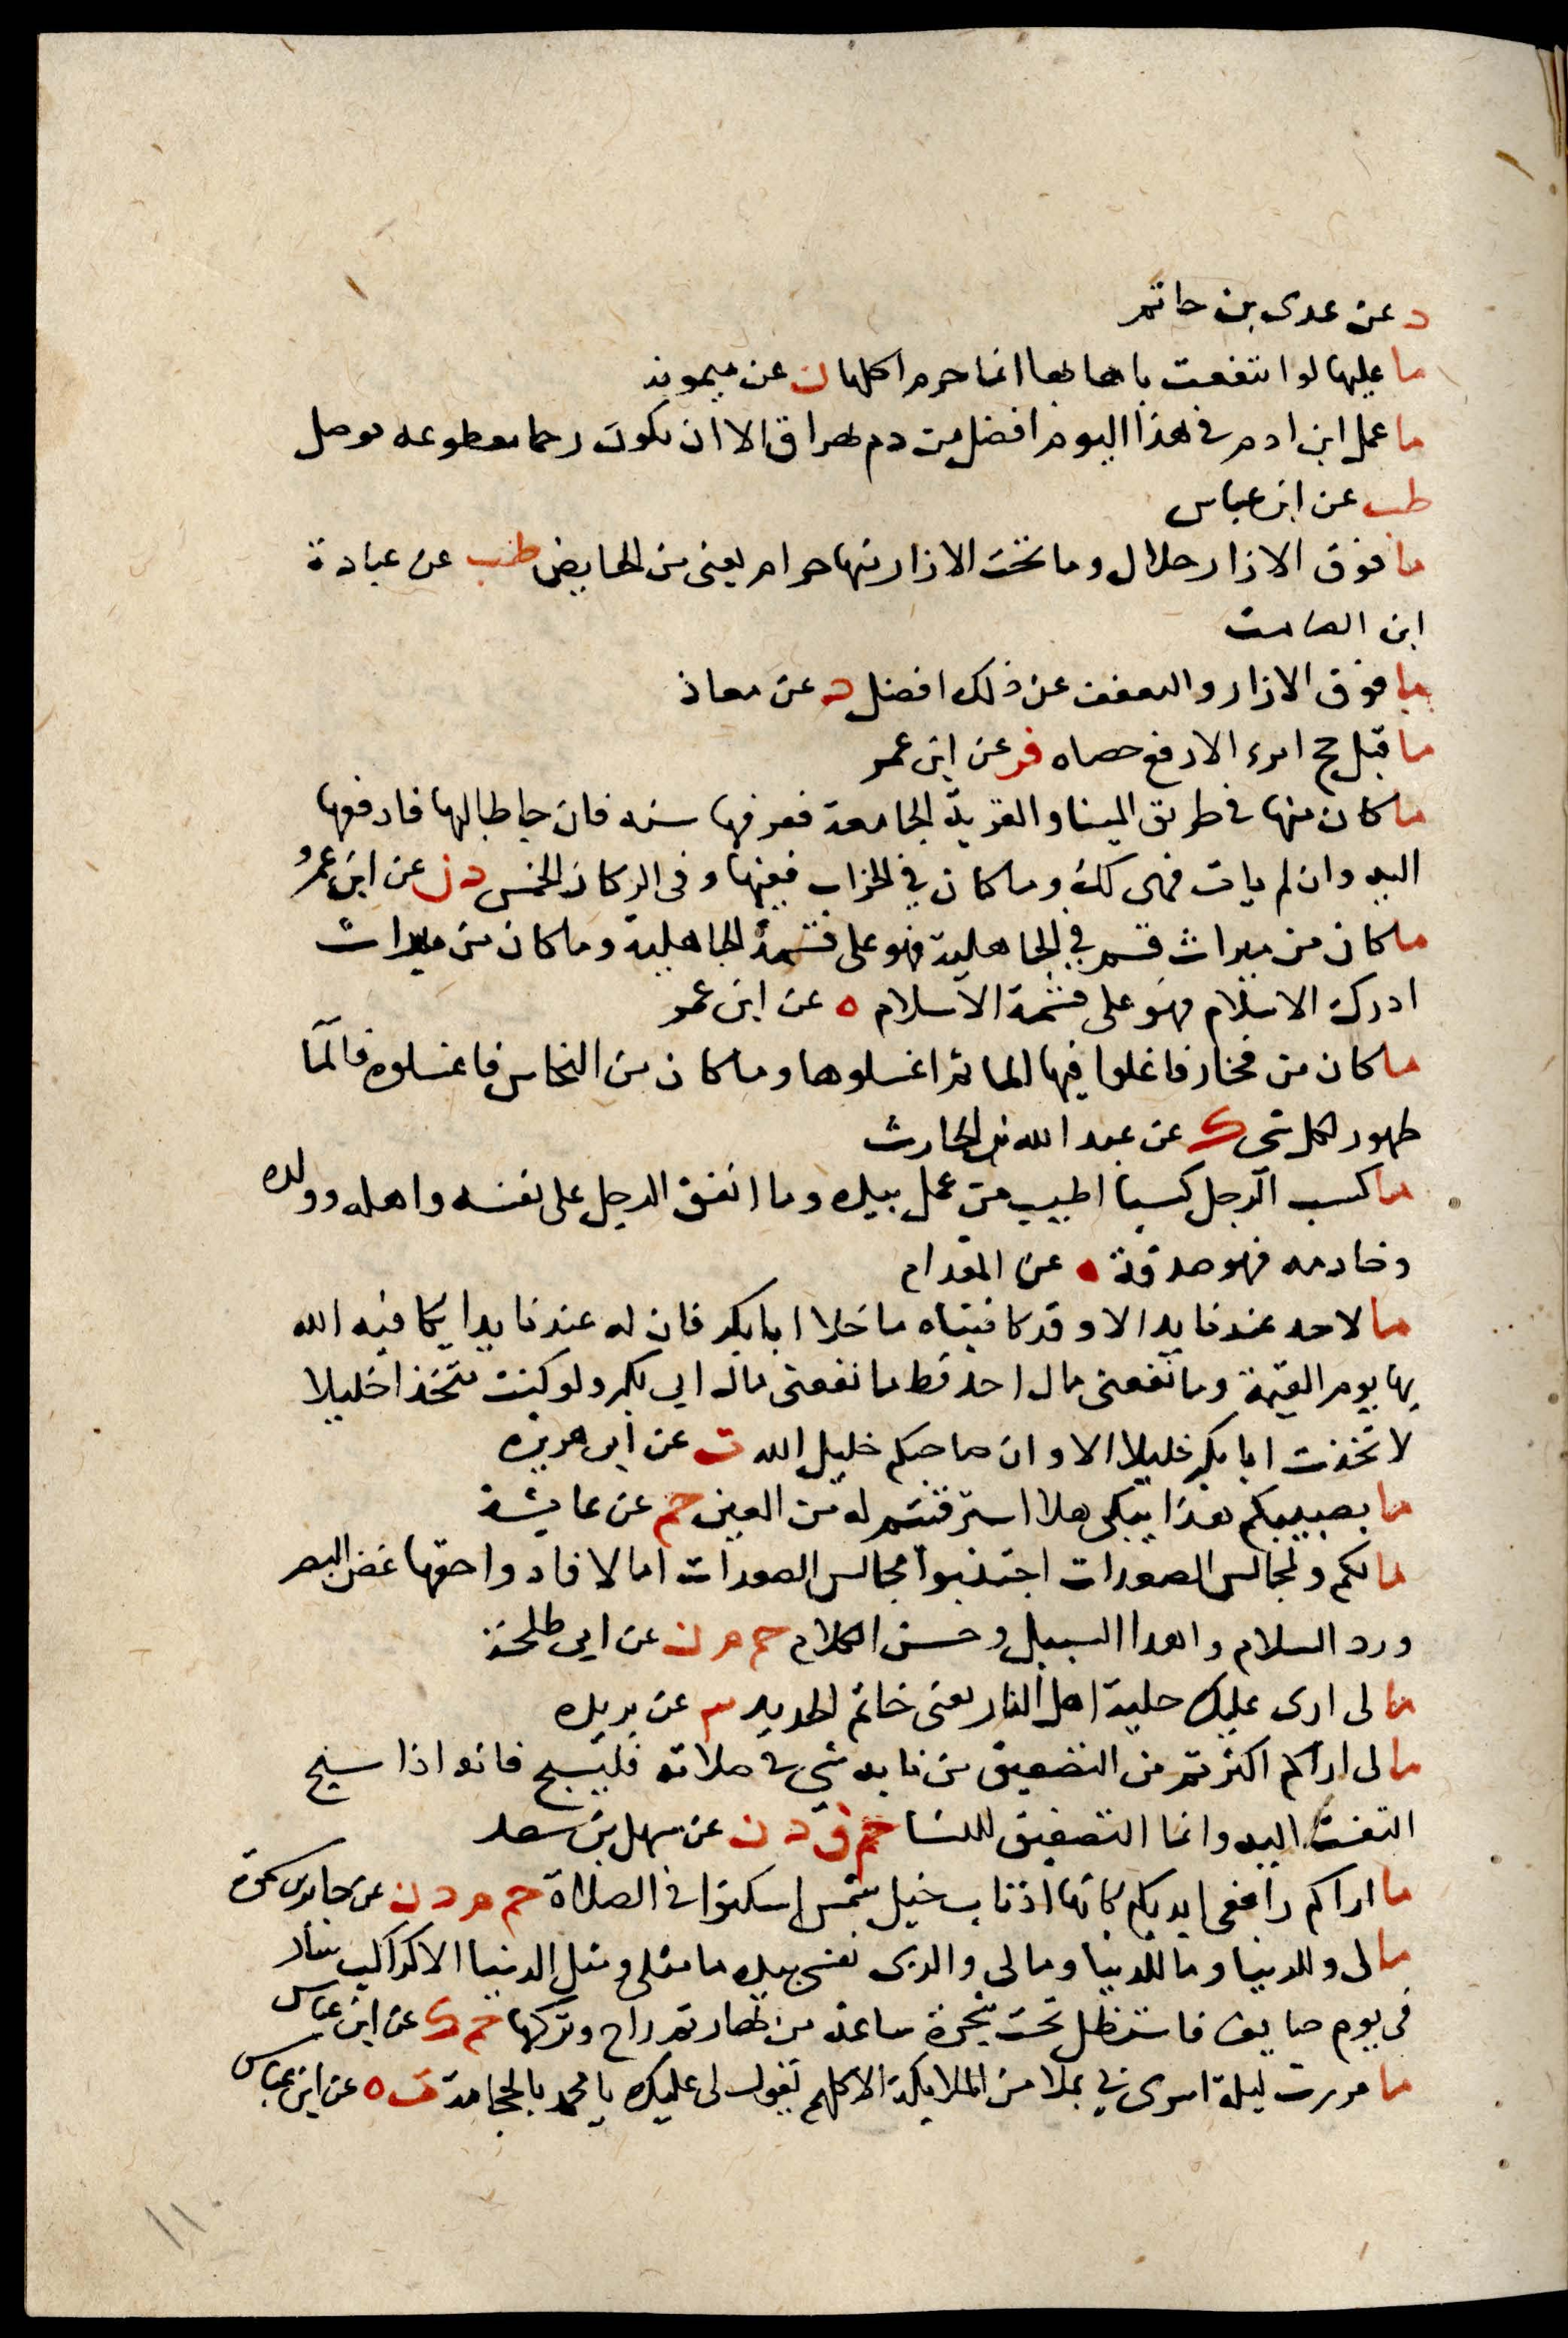 د عن عدى بن حاتم
ما عليها لو انتفعت باهابها انما حرم اكلها ن عن ميمونه
ما عمل ابن ادم فى هذا اليوم افضل من دم يهراق الا ان يكون رحما مقطوعه توصل
طب عن ابن عباس
ما فوق الازار حلال وما تحت الازار منها حرام يعنى من الحايض طب عن عبادة
ابن الصامت
ما فوق الازار والتعفف عن ذلك افضل د عن معاذ
ما قبل حج امرء الا رفع حصاه فر عن ابن عمر
ما كان منها فى طريق الميتا والقرية الجامعة فعرفها سنه فان جا طالبها فادفعها
اليه وان لم يات فهى لك وما كان فى الخراب ففيها وفى الركاز الخمس د ن عن ابن عمرو
ما كان من ميراث قسم فى الجاهلية فهو على قسمة الجاهلية وما كان من ميراث
ادركه الاسلام فهو على قسمة الاسلام ه عن ابن عمر
ما كان من فخار فاغلوا فيها الما ثم اغسلوها وما كان من النحاس فاغسلوه فالمآ
طهور لكل شى ك عن عبد الله بن الحارث
ما كسب الرجل كسبا اطيب من عمل بيده وما انفق الرجل على نفسه واهله وولده
وخادمه فهو صدقة ه عن المقدام
ما لاحد عندنا يد الا وقد كافيناه ما خلا ابا بكر فان له عندنا يدا يكافيه الله
بها يوم القيمة وما نفعنى مال احد قط ما نفعنى مال ابى بكر ولو كنت متخذا خليلا
لاتخذت ابا بكر خليلا الا وان صاحبكم خليل الله ت عن ابى هريره
ما بصبيكم هذا يبكى هلا استرقيتم له من العين حم عن عايشة
مالكم ولمجالس الصعدات اجتنبوا مجالس الصعدات اما لا فادوا حقها غض البصر
ورد السلام واهدا السبيل وحسن الكلام حم م ن عن ابى طلحة
ما لى ارى عليك حلية اهل النار يعنى خاتم الحديد ٣ عن بريده
ما لى اراكم اكثرتم من التصفيق من نابه شى فى صلاته فليسبح فانه اذا سبح
التفت اليه وانما التصفيق للنسا حم ق د ن عن سهل بن سعد
ما اراكم رافعى ايديكم كانها اذناب خيل شمس اسكنوا فى الصلاة حم م د ن عن جابر بن سمرة
ما لى وللدنيا وما للدنيا وما لى والذى نفسى بيده ما مثلى ومثل الدنيا الا كراكب سار
فى يوم صايف فاستظل تحت شجرة ساعة من نهار ثم راح وتركها حم ك عن ابن عباس
ما مررت ليلة اسرى بى بملا من الملايكة الا كلهم يقول لى عليك يا محمد بالحجامة ت ه عن ابن عباس
١١٠